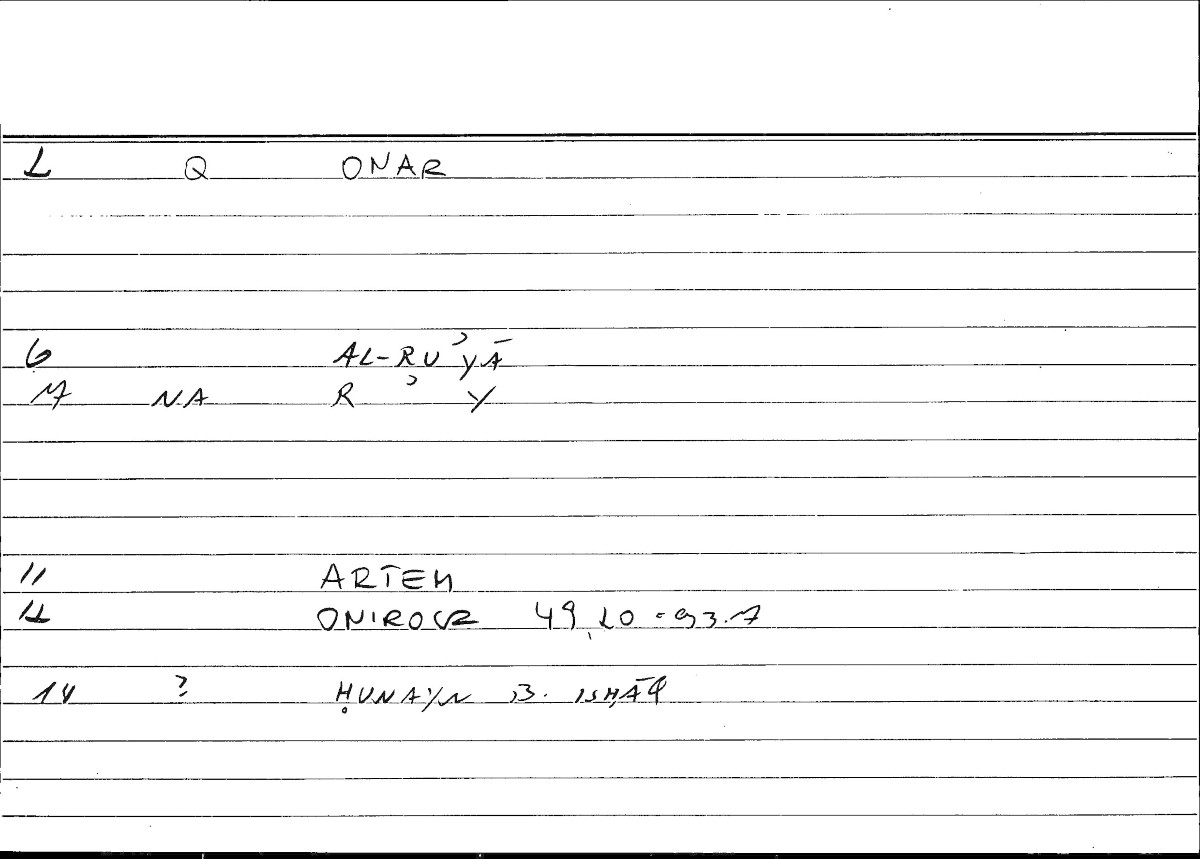 1 Q ONAR
6 AL-RUʾYĀ
7 NA R ʾ Y
11 ARTEM
12 ONIROCR 49,10 - 93.7
14 ? ḤUNAYN B. ISḤĀQ